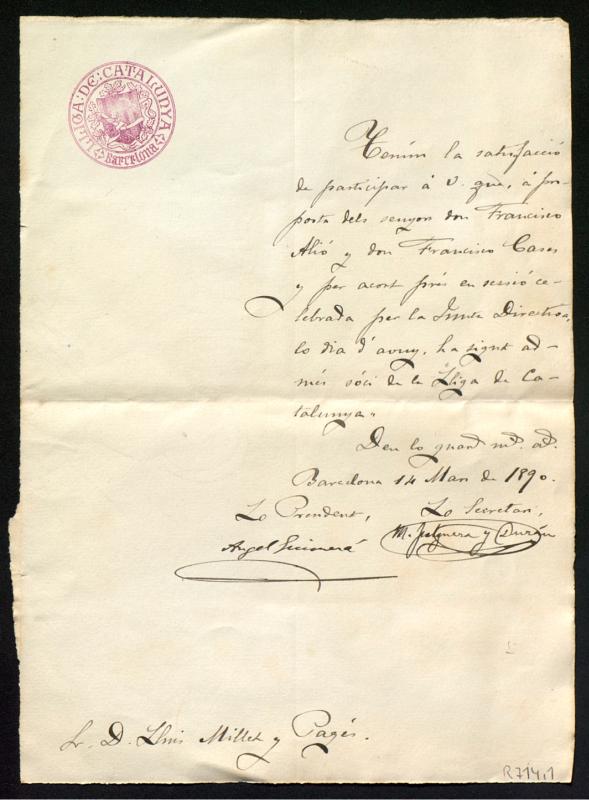 LLIGA·DE·CATALUNYA
Barcelona
Tenim la satisfacció
de participar á V. que, á pro-
posta dels senyors don Francisco
Alió y don Francisco Casas
y per acort prés en sessió ce-
lebrada per la Junta Directiva,
lo dia d'avuy, ha sigut ad-
més sóci de la Lliga de Ca-
talunya.
Deu lo guard m.s a.s.
Barcelona 14 Mars de 1890.
Lo President, Lo Secretari,
Angel Guimerá M. Folguera y Durán
Sr. D. Lluis Millet y Pagés.
R 714,1